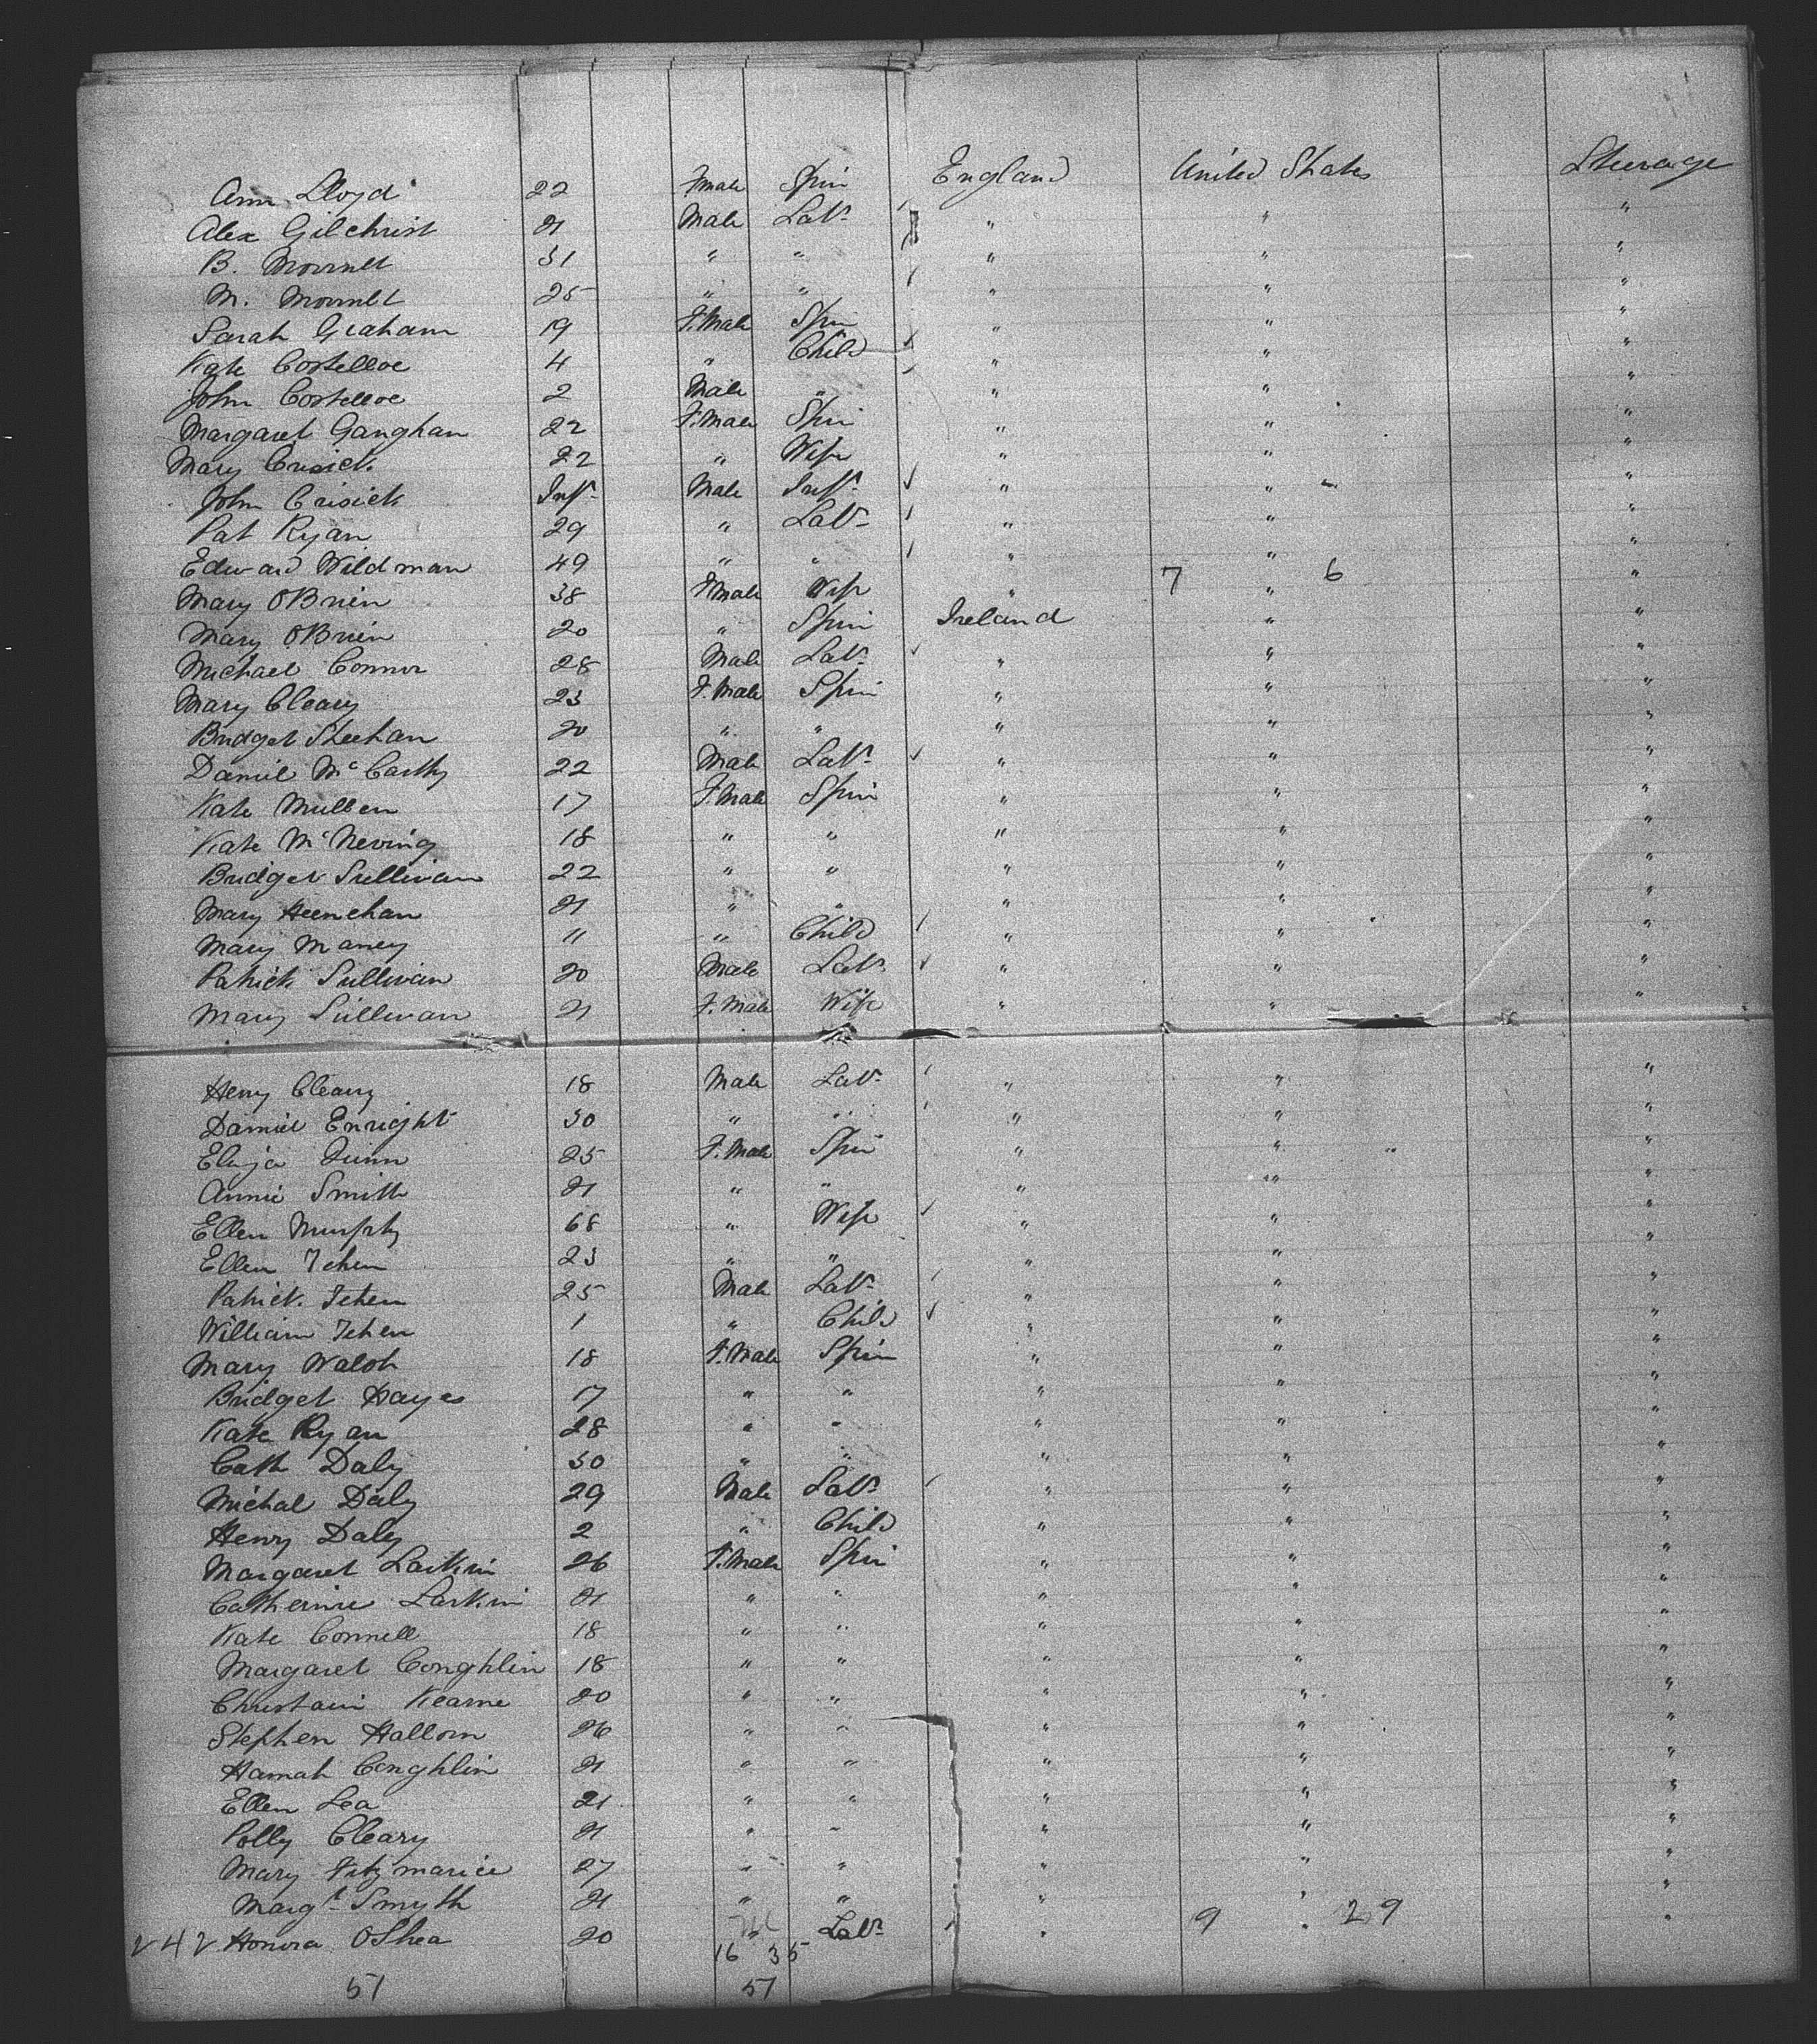 Ann Lloyd 22 Fmale Spin England United States Steerage
Alex Gilchrist 21 Male Labr " " "
B. 31 " " " " "
M. 25 " " " " "
Sarah Graham 19 F.Male Spin " " "
Kate Costelloe 4 " Child " " "
John Costelloe 2 Male " " " "
Margaret Ganghan 22 F.Male Spin " " "
Mary Cusick 22 " Wife " " "
John Crisick Inft Male Inft " " "
Pat Ryan 29 " Labr " " "
Edward Wildman 49 " " " " "
Mary OBrien 38 Fmale Wife " 7 " 6 "
Mary OBrien 20 " Spin Ireland " "
Michael Connor 28 Male Labr " " "
Mary Cleary 23 F.Male Spin " " "
Bridget Sheehan 20 " " " " "
Daniel McCarthy 22 Male Labr " " "
Kate Mullen 17 F.Male Spin " " "
Kate McNeving 18 " " " " "
Bridget Sullivan 22 " " " " "
Mary Heenehan 21 " " " " "
Mary Maney 11 " Child " " "
Patrick Sullivan 20 Male Labr " " "
Mary Sullivan 21 F.Male Wife " " "
Henry Cleary 18 Male Labr " " "
Daniel Enright 30 " " " " "
Eliza Quinn 25 F.Male Spin " " "
Annie Smith 21 " " " " "
Ellen Murphy 68 " Wife " " "
Ellen 23 " " " " "
Patrick 25 Male Labr " " "
William 1 " Child " " "
Mary Walsh 18 F.Male Spin " " "
Bridget Hayes 17 " " " " "
Kate Ryan 28 " " " " "
Cath Daly 30 " " " " "
Michal Daly 29 Male Labr " " "
Henry Daly 2 " Child " " "
Margaret Larkin 26 F.Male Spin " " "
Catherine Larkin 21 " " " " "
Kate Connell 18 " " " " "
Margaret Conghlin 18 " " " " "
Christain Kearne 20 " " " " "
Stephen Hallorn 26 " " " " "
Hannah Conghlin 21 " " " " "
Ellen Lea 21 " " " " "
Polly Cleary 21 " " " " "
Mary Fitzmarice 27 " " " " "
Margt Smyth 21 " " " " "
242 Honora OShea 20 " Labr " 9 " 29 "
16 35
51 51